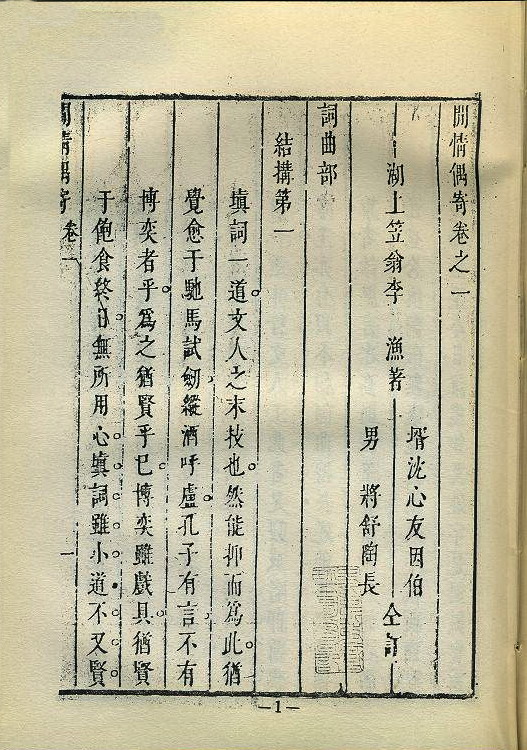 閒情偶寄卷之一
湖上笠翁李　漁著
壻沈心友因伯
男　將舒陶長
仝訂
詞曲部
結搆第一
填詞一道文人之末技也然能抑而為此猶
覺愈于馳馬試劒縱酒呼盧孔子有言不有
博奕者乎爲之猶賢乎已博奕雖戲具猶賢
于飽食終日無所用心填詞雖小道不又賢
閒情偶寄　卷一　一
—1—